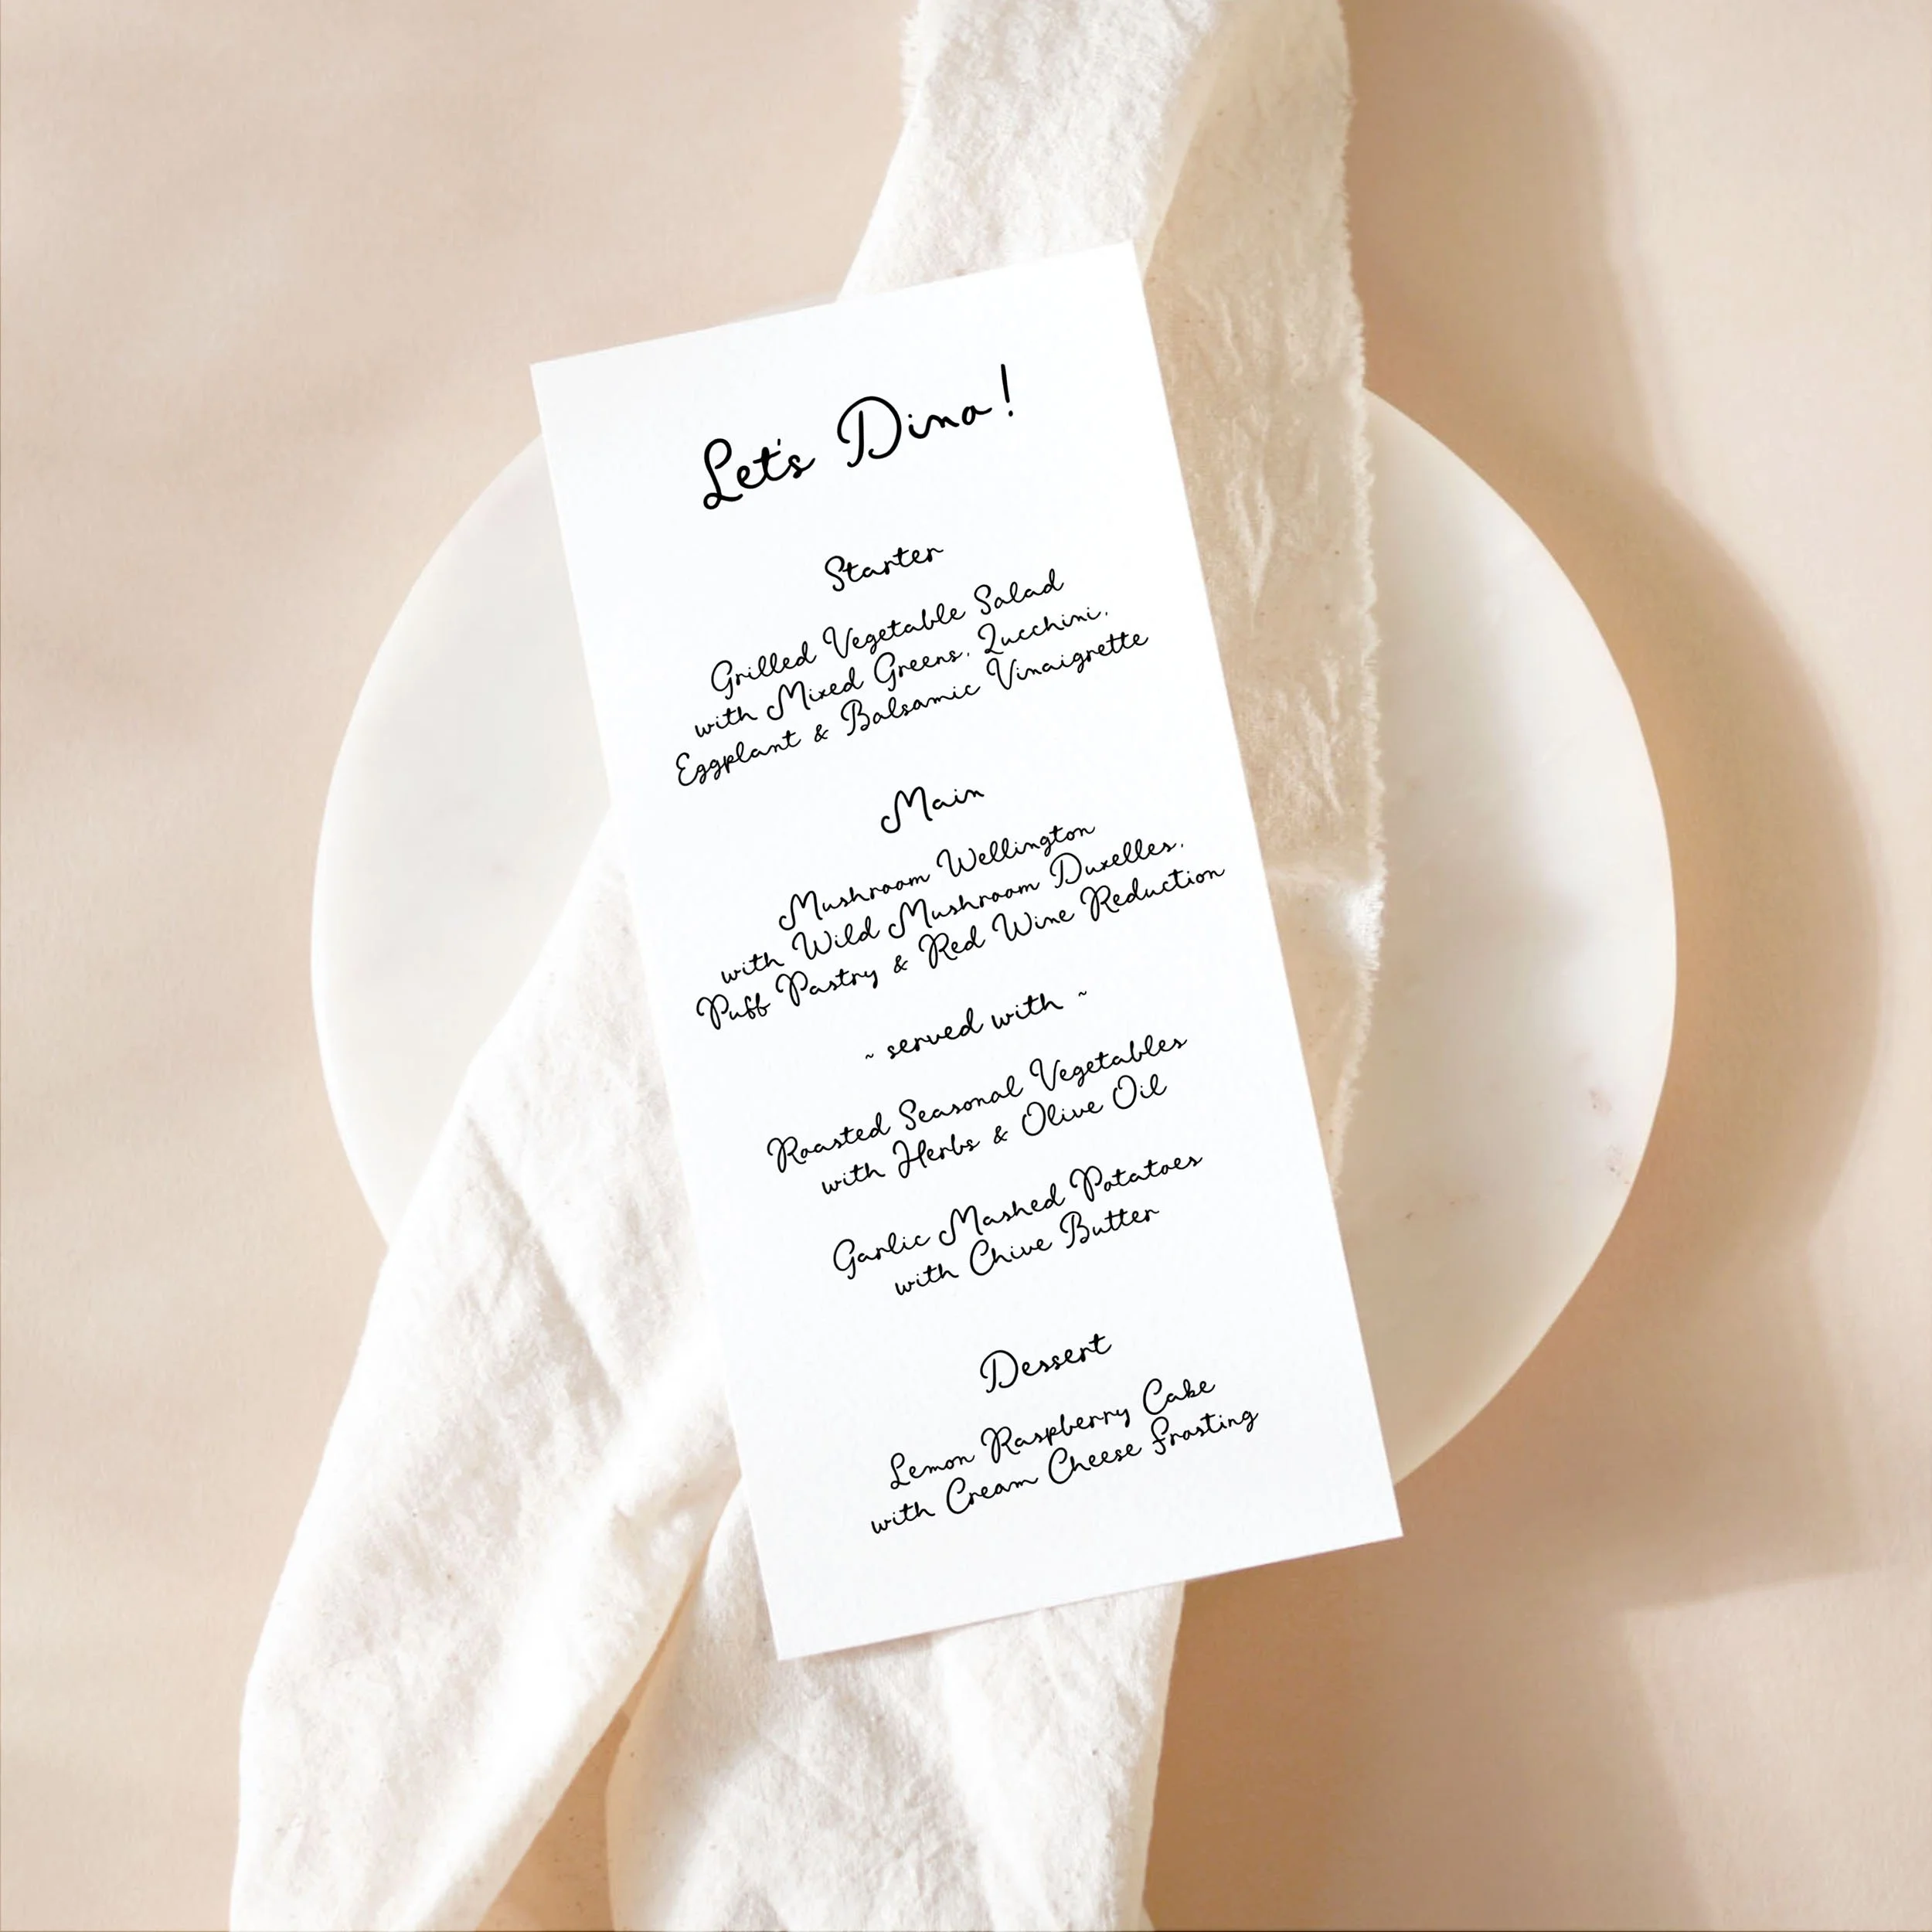 Let's Dina!
Starter
Grilled Vegetable Salad
with Mixed Greens, Zucchini,
Eggplant & Balsamic Vinaigrette
Main
Mushroom Wellington
with Wild Mushroom Duxelles,
Puff Pastry & Red Wine Reduction
~ served with ~
Roasted Seasonal Vegetables
with Herbs & Olive Oil
Garlic Mashed Potatoes
with Chive Butter
Dessert
Lemon Raspberry Cake
with Cream Cheese Frosting